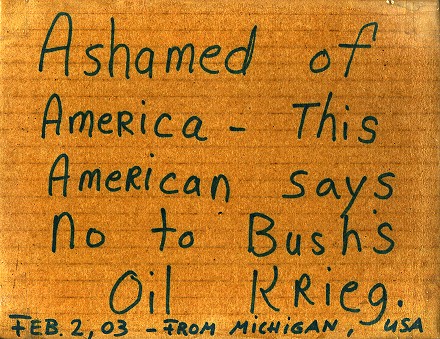 Ashamed of
America - This
American says
No to Bush's
Oil Krieg.
FEB. 2, 03 - FROM MICHIGAN, USA